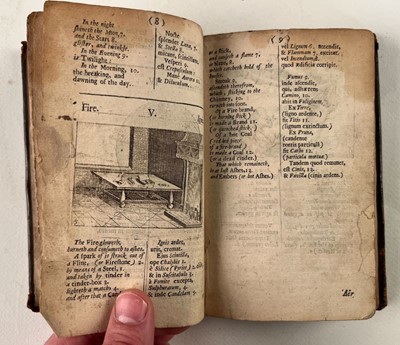 (8)
In the night
shineth the Moon, 7.
and the Stars 8.
glister, and twinkle.
In the Evening 9.
is Twilight:
In the Morning, 10.
the breaking, and
dawning of the day.
Nocte
splendet Luna, 7.
& Stellæ 8.
micant, scintillant.
Vesperi 9.
est Crepusculum:
Manè Aurora 10.
& Diluculum.
Fire.
V.
The Fire gloweth,
burneth and consumeth to ashes.
A spark of it struck out of
a Flint, (or Firestone) 2.
by means of a Steel, 1.
and taken by tinder in
a tinder-box 3.
lighteth a match 4.
and after that a
Ignis ardet,
urit, cremat.
Ejus Scintilla,
ope Chalybis 1.
è Silice (Pyrite) 2.
& in Suscitabulo 3.
à Fomite excepta,
Sulphuratum, 4.
& inde Candelam
(9)
a flame 7.
which catcheth hold of the
ascendeth therefrom,
sticking in the
Chimney, 10.
Of a Fire brand,
(or burning stick)
is made a Brand 11.
(or quenched stick.)
Of a hot Coal
is made a Coal 12.
(or a dead Cinder.)
That which remaineth,
is at last Ashes, 13.
and Embers (or hot Ashes.)
vel Lignum 6. accendit,
& Flammam 7. excitat,
vel Incendium 8.
quod Ædificia corripit.
Fumus 9.
inde ascendit,
qui, adhærens
Camino, 10.
abit in Fuliginem.
Ex Torre,
(ligno ardente,)
fit Titio 11.
(lignum extinctum.)
Ex Pruna,
(candente
torris particulâ)
fit Carbo 12.
(particula mortua)
Tandem quod remanet,
est Cinis, 13.
& Favilla (cinis ardens.)
Air